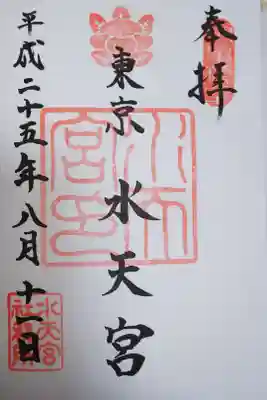 奉拝
東京 水天宮
平成二十五年八月十一日
水天宮印
水天宮